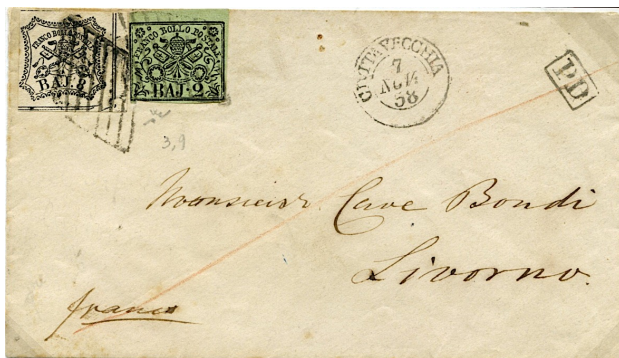 FRANCO BOLLO POSTALE
BAJ·8
FRANCO BOLLO POSTALE
BAJ·2
CIVITAVECCHIA
7
58
PD
3,9
Monsieur Cave Bondi
Livorno.
franco